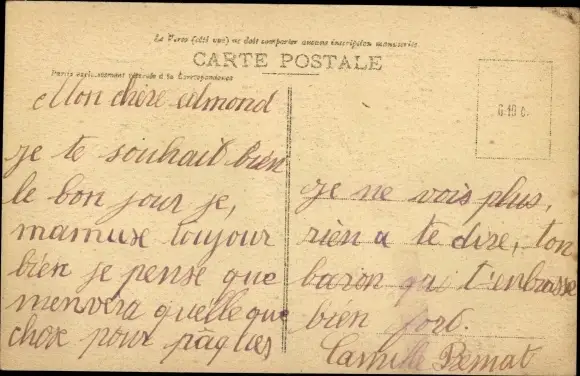 Le Verso (côté vue) ne doit comporter aucune inscription manuscrite
CARTE POSTALE
Partie exclusivement réservée à la Correspondance
6.19 c.
Mon chère edmond
je te souhait bien
le bon jour je,
mamuse toujour
bien je pense que
menvera quelle que
chose pour pâques
Je ne vois plus,
rien a te dire, ton
baron qui t'enbrasse
bien fort.
Camille Bernat